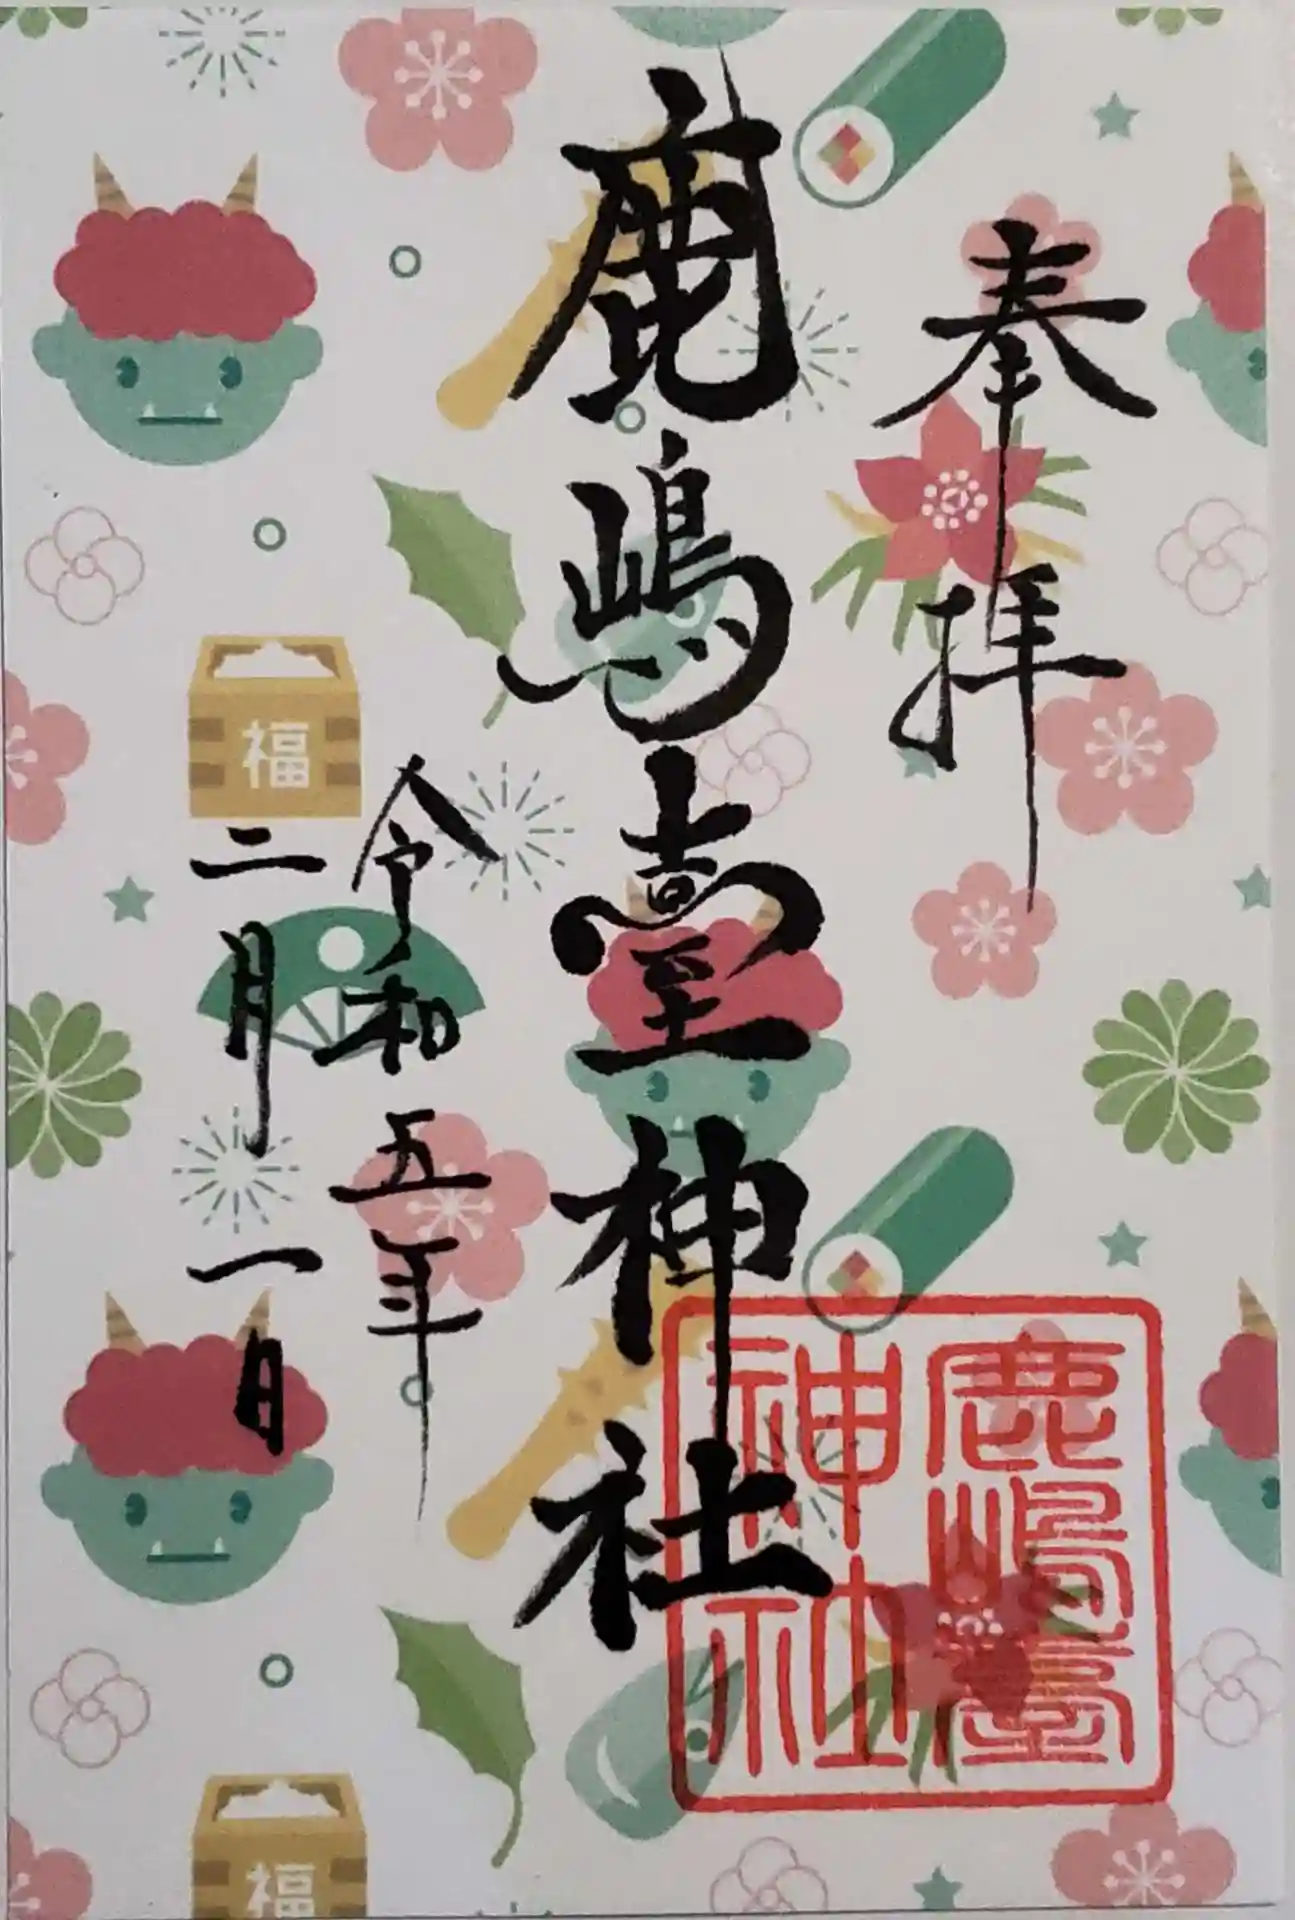 奉拝
鹿嶋臺神社
令和五年
二月一日
福
鹿嶋臺
神社
福